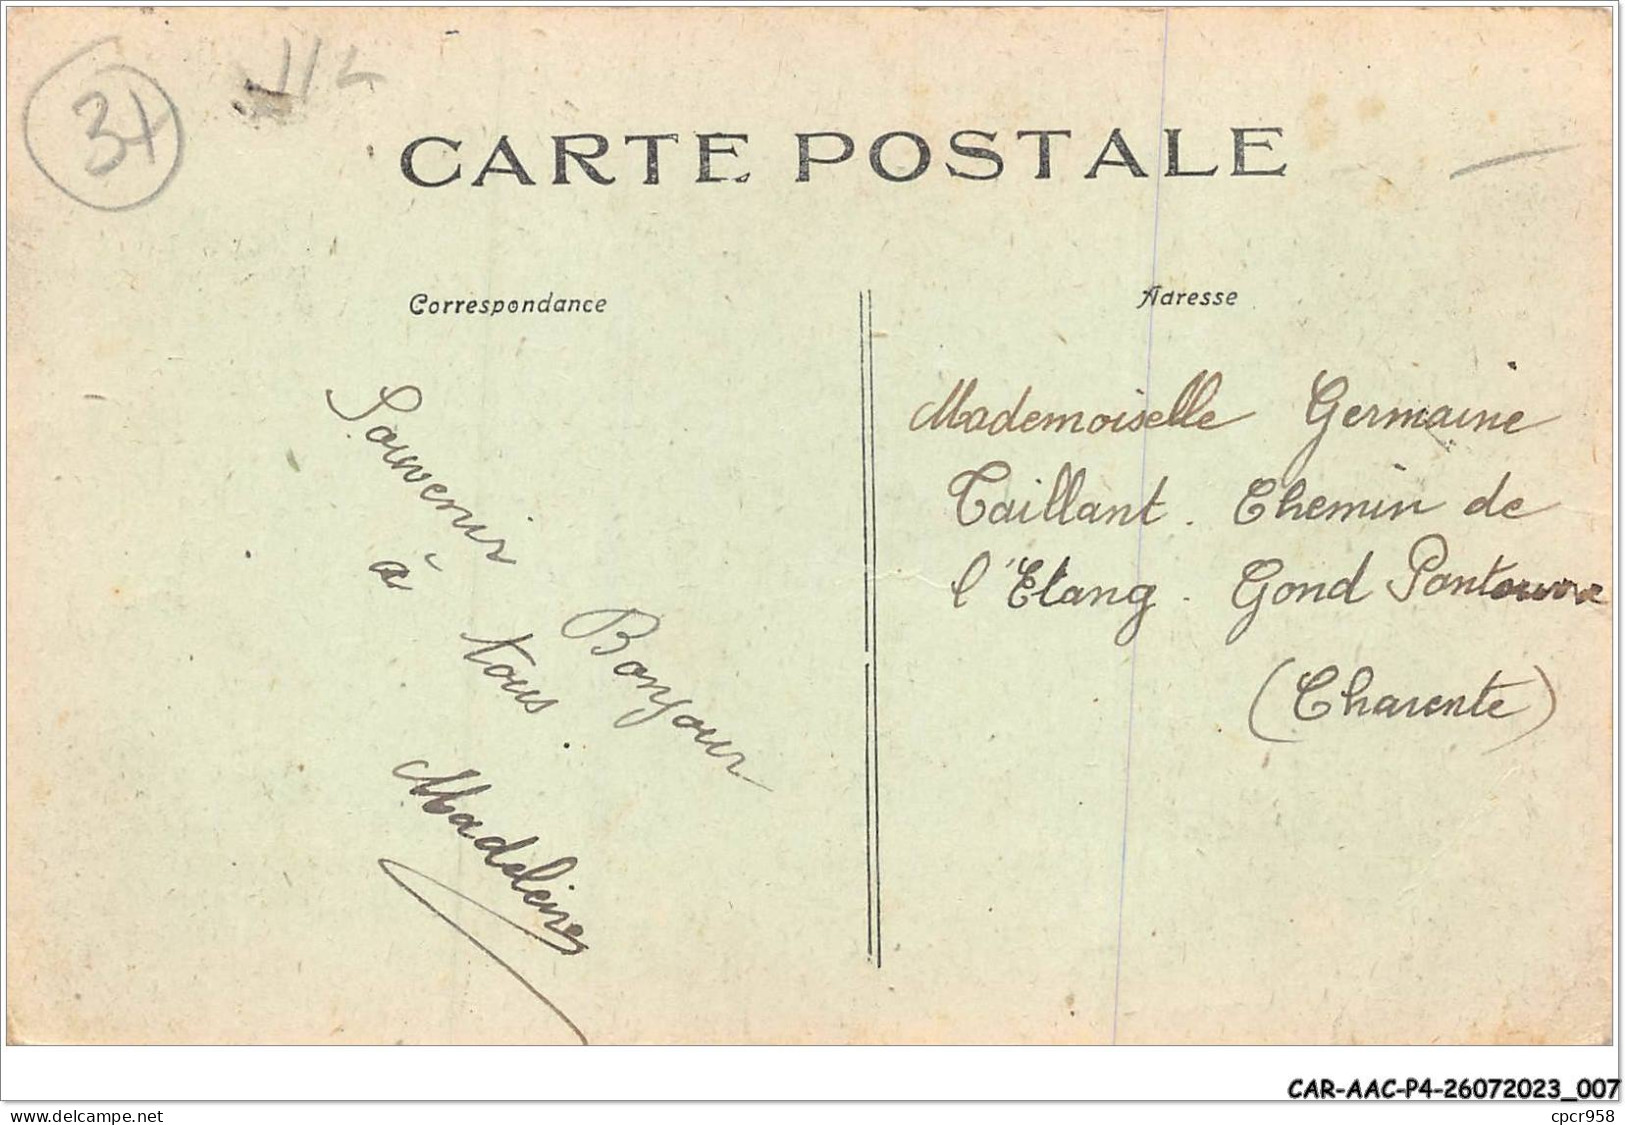 31
CARTE POSTALE
Correspondance
Adresse
Souvenir
à
tous.
Bonjour
Madeleine
Mademoiselle Germaine
Taillant. Chemin de
l'Etang. Gond Pontouvre
(Charente)
CAR-AAC-P4-26072023_007
delcampe.net
cpcr958